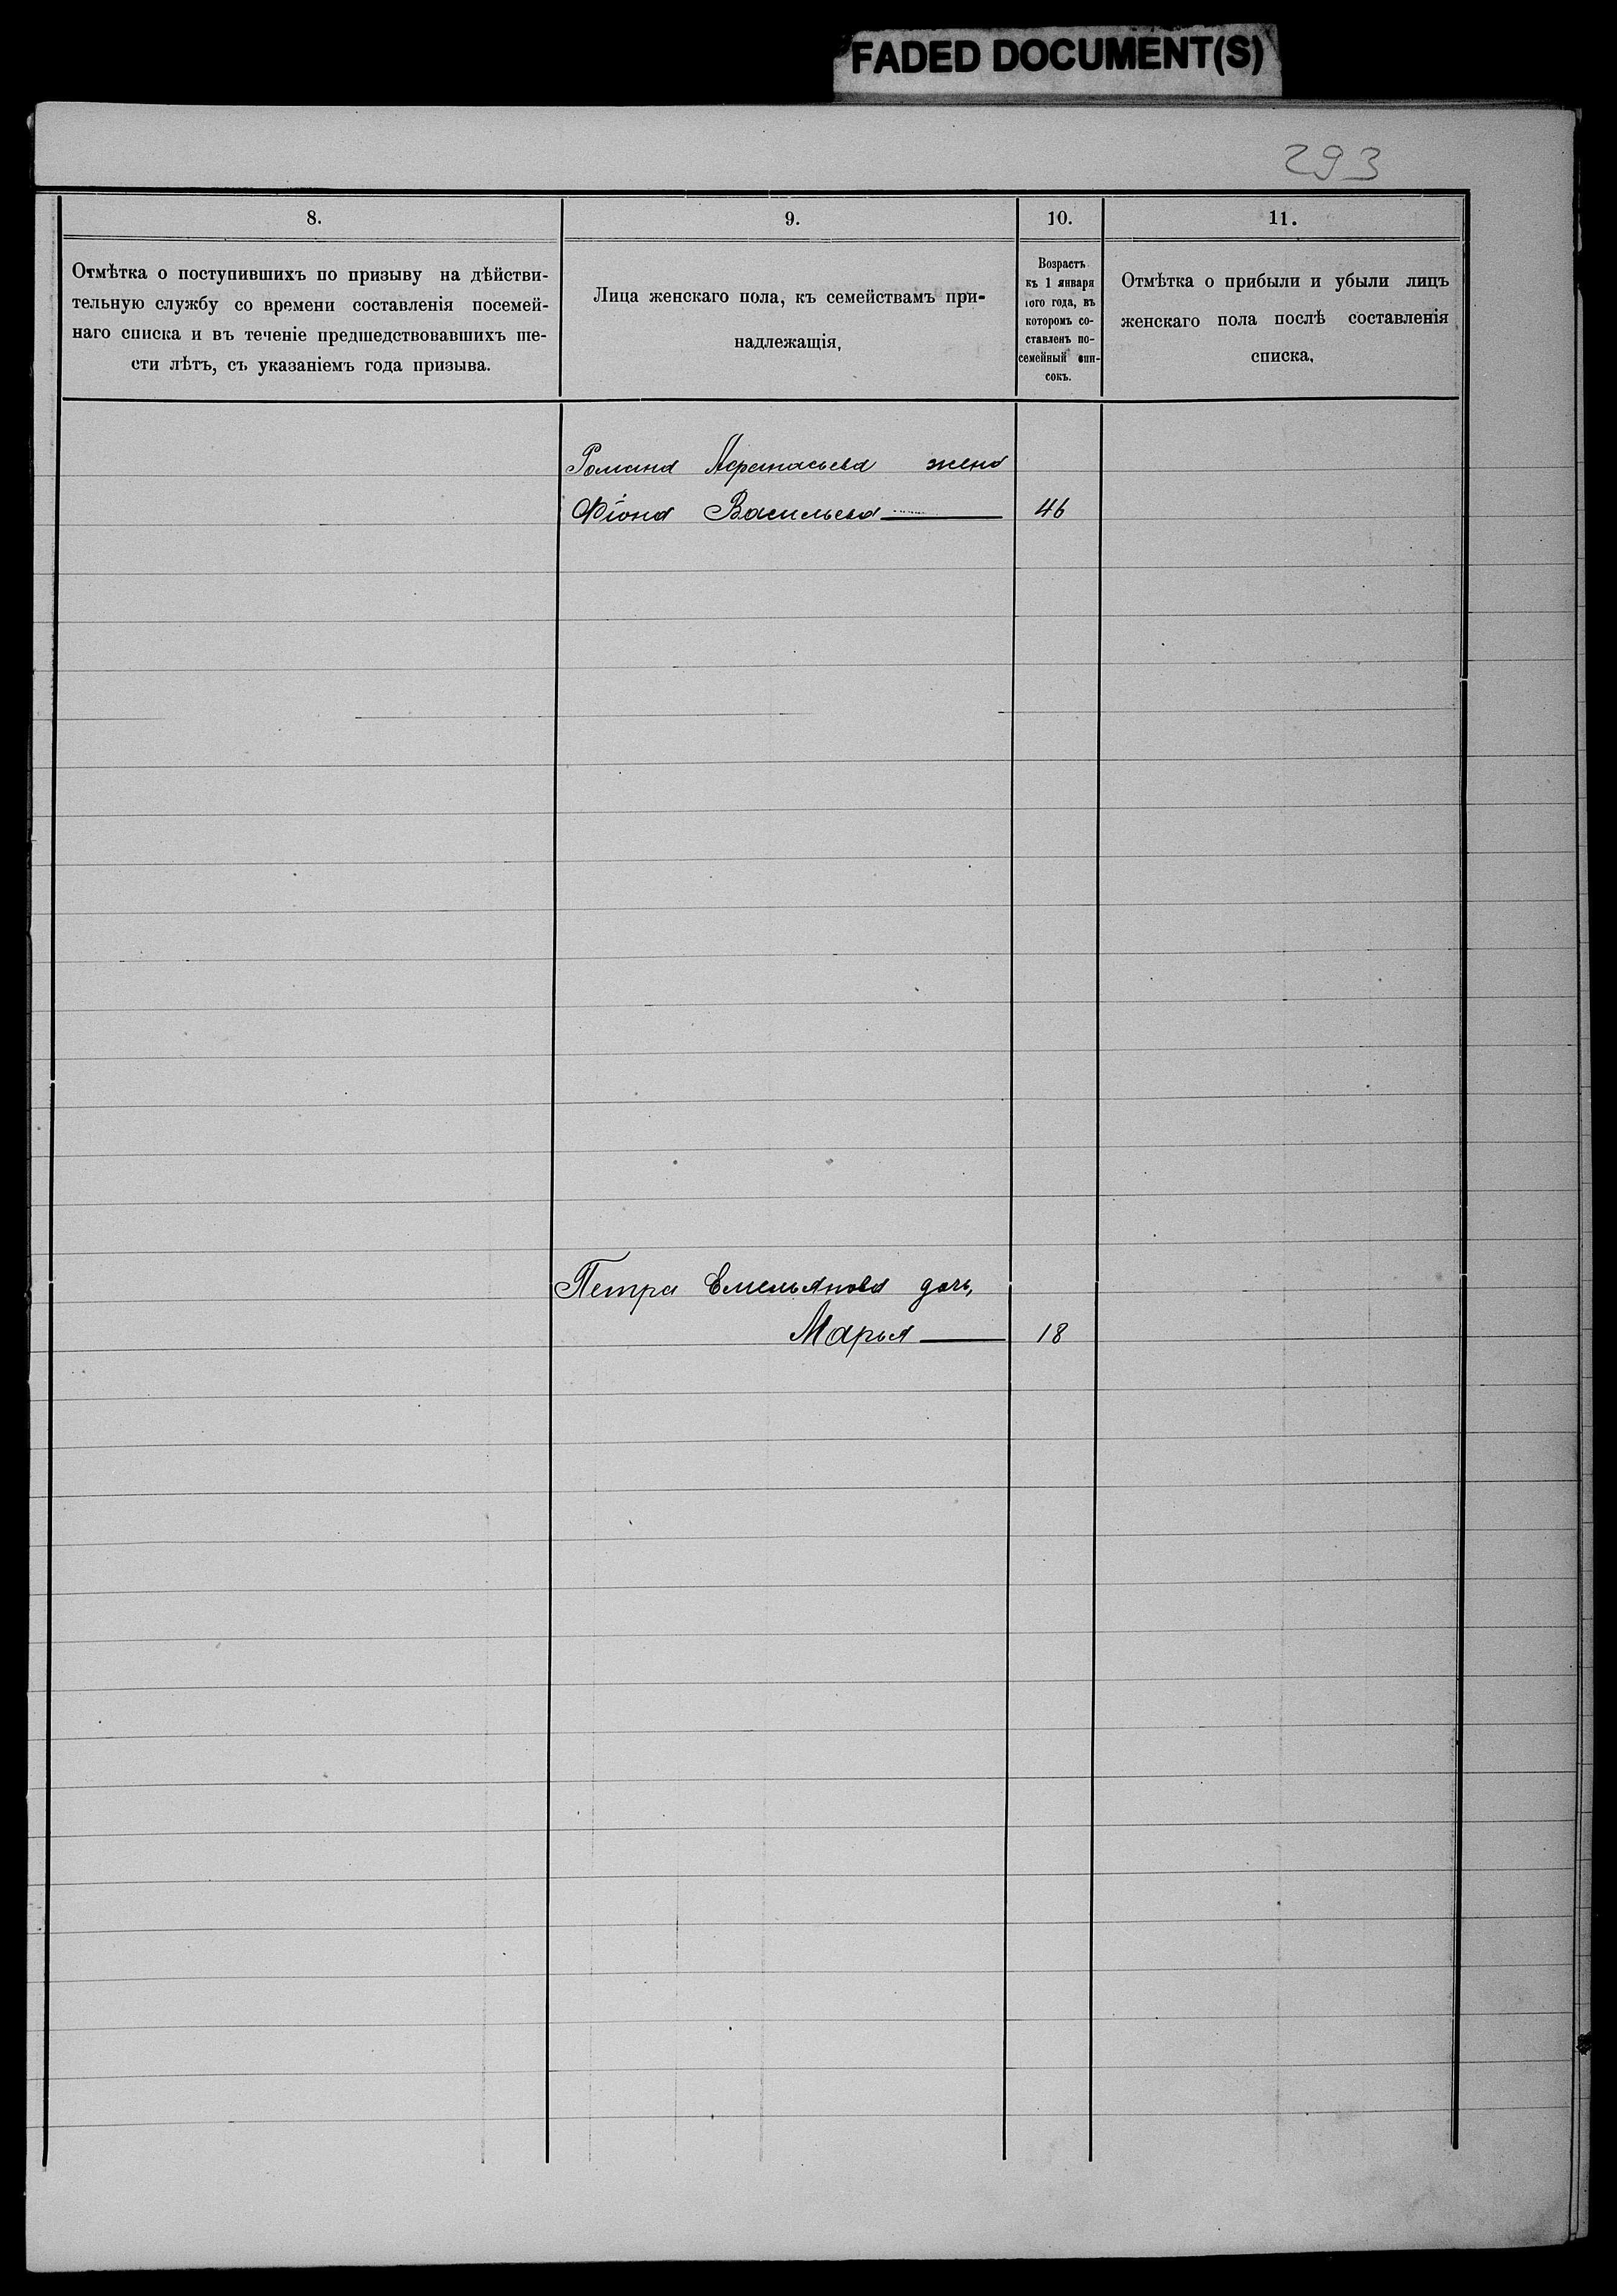 FADED DOCUMENT(S)
293
8.
9.
10.
11.
Отмѣтка о поступившихъ по призыву на дѣйстви-
тельную службу со времени составленія посемей-
наго списка и въ теченіе предшедствовавшихъ ше-
сти лѣтъ, съ указаніемъ года призыва.
Лица женскаго пола, къ семействамъ при-
надлежащія,
Возрастъ
къ 1 января
того года, въ
которомъ со-
ставленъ по-
семейный спи-
сокъ.
Отмѣтка о прибыли и убыли лицъ
женскаго пола послѣ составленія
списка.
Романа Афанасьева жена
Фіона Васильева 46
Петра Емельянова дочь,
Марья 18